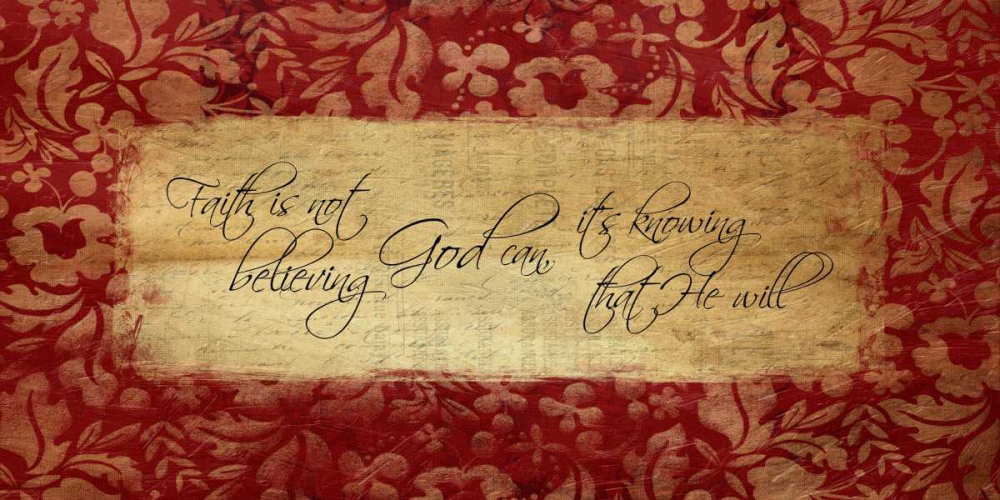 Faith is not
believing
God can,
it's knowing
that He will